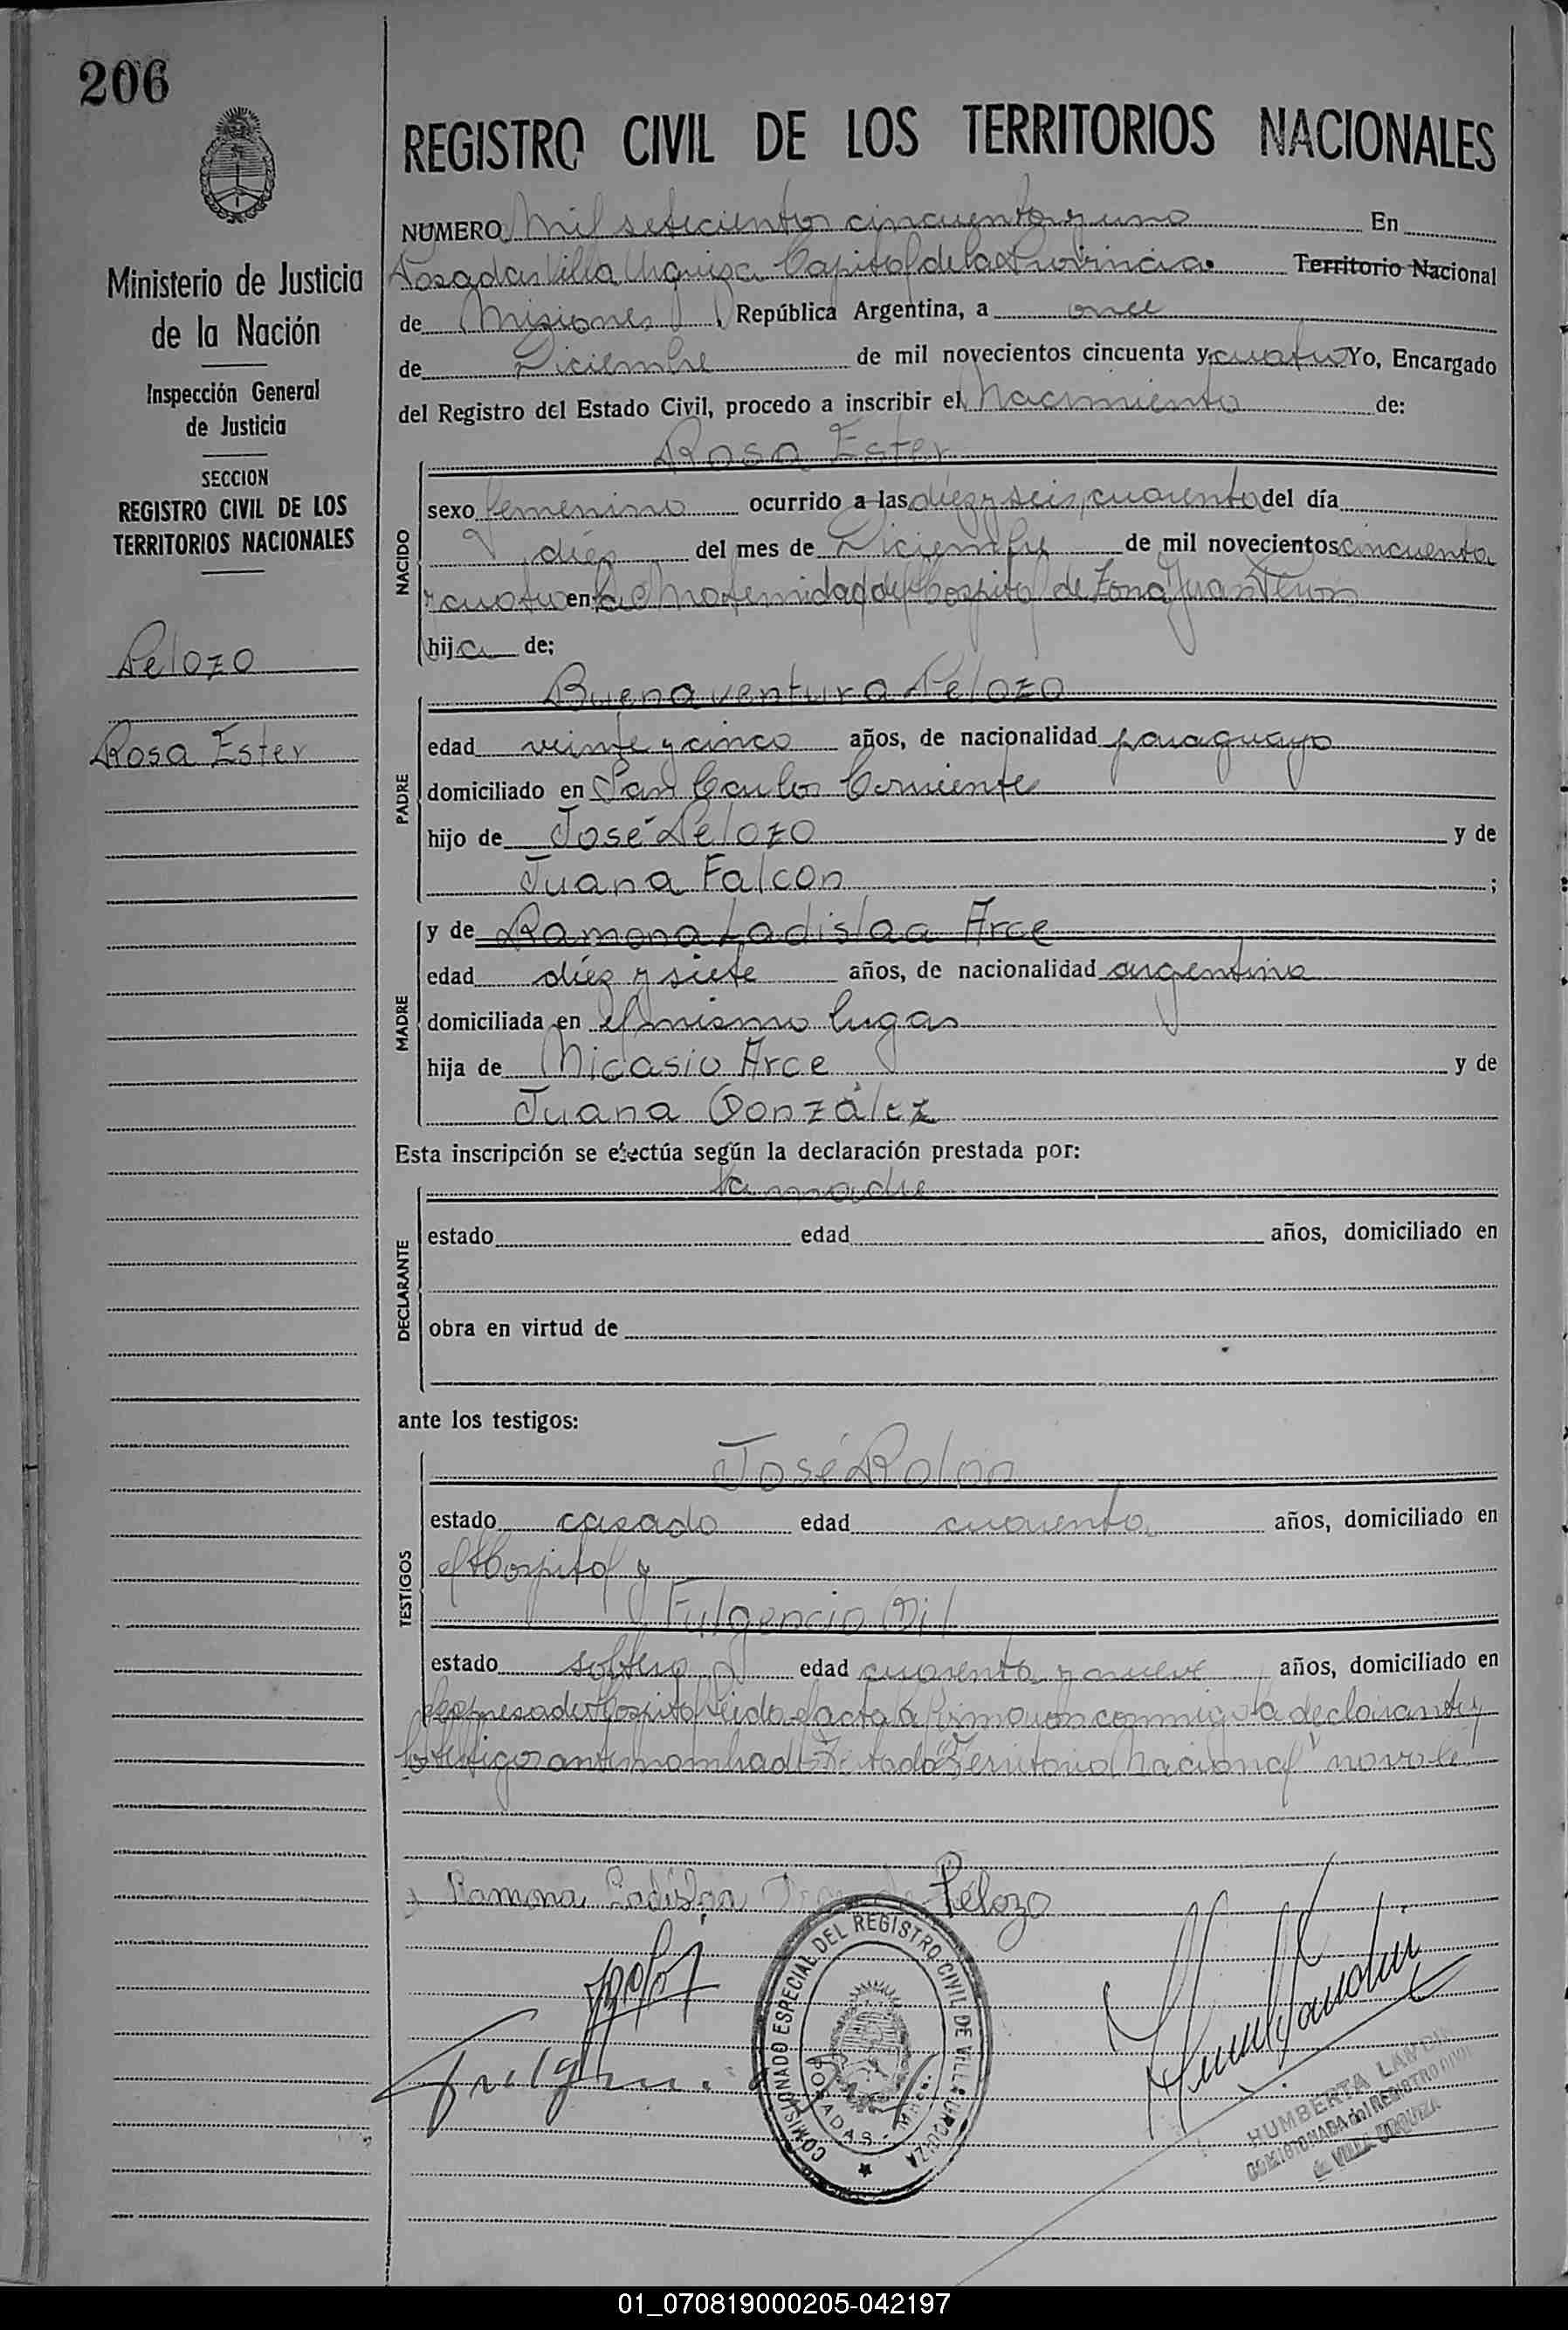 206
REGISTRO CIVIL DE LOS TERRITORIOS NACIONALES
Ministerio de Justicia
de la Nación
Inspección General
de Justicia
SECCION
REGISTRO CIVIL DE LOS
TERRITORIOS NACIONALES
Pelozo
Rosa Ester
NUMERO Mil setecientos cincuenta y uno En
Posadas Villa Urquiza Capital de la Provincia. Territorio Nacional
de Misiones, República Argentina, a once
de Diciembre de mil novecientos cincuenta y cuatro Yo, Encargado
del Registro del Estado Civil, procedo a inscribir el Nacimiento de:
NACIDO
Rosa Ester
sexo femenino ocurrido a las diez y seis, cuarenta del día
diez del mes de Diciembre de mil novecientos cincuenta
y cuatro en la Maternidad del Hospital de Zona Juan Perón
hija de;
PADRE
Buenaventura Pelozo
edad veinte y cinco años, de nacionalidad paraguayo
domiciliado en San Carlos Corrientes
hijo de José Pelozo y de
Juana Falcon ;
MADRE
y de Ramona Ladislaa Arce
edad diez y siete años, de nacionalidad argentina
domiciliada en el mismo lugar
hija de Nicasio Arce y de
Juana González
Esta inscripción se efectúa según la declaración prestada por:
DECLARANTE
la madre
estado edad años, domiciliado en
obra en virtud de
ante los testigos:
TESTIGOS
José Rolon
estado casado edad cuarenta años, domiciliado en
el Hospital y
Fulgencio Gil
estado soltero edad cuarenta y nueve años, domiciliado en
el expresado Hospital leida el acta la firmaron conmigo la declarante y
los testigos antes nombrados Testado "Territorio Nacional" no vale
Ramona Ladislaa Arce de Pelozo
COMISIONADO ESPECIAL DEL REGISTRO CIVIL DE VILLA URQUIZA
POSADAS - Mnes.
HUMBERTA LANDIN
COMISIONADA del REGISTRO CIVIL
de VILLA URQUIZA
01_070819000205-042197